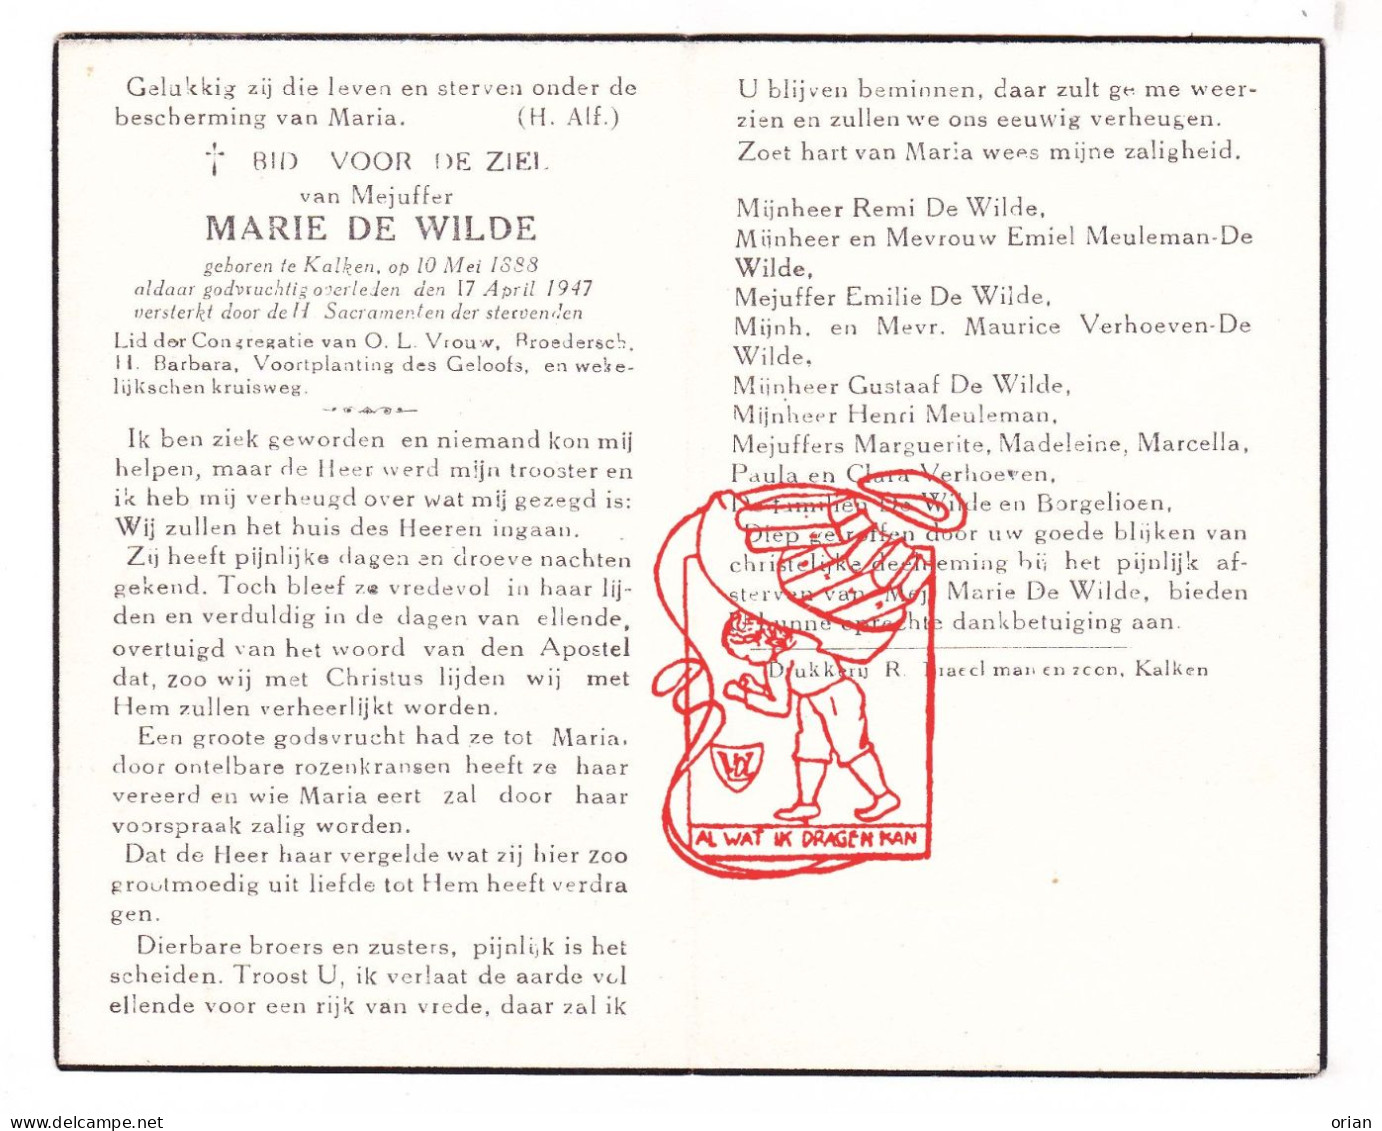 Gelukkig zij die leven en sterven onder de
bescherming van Maria. (H. Alf.)
BID VOOR DE ZIEL
van Mejuffer
MARIE DE WILDE
geboren te Kalken, op 10 Mei 1888
aldaar godvruchtig overleden den 17 April 1947
versterkt door de H Sacramenten der stervenden
Lid der Congregatie van O. L. Vrouw, Broedersch.
H. Barbara, Voortplanting des Geloofs, en weke-
lijkschen kruisweg.
Ik ben ziek geworden en niemand kon mij
helpen, maar de Heer werd mijn trooster en
ik heb mij verheugd over wat mij gezegd is:
Wij zullen het huis des Heeren ingaan.
Zij heeft pijnlijke dagen en droeve nachten
gekend. Toch bleef ze vredevol in haar lij-
den en verduldig in de dagen van ellende,
overtuigd van het woord van den Apostel
dat, zoo wij met Christus lijden wij met
Hem zullen verheerlijkt worden.
Een groote godsvrucht had ze tot Maria.
door ontelbare rozenkransen heeft ze haar
vereerd en wie Maria eert zal door haar
voorspraak zalig worden.
Dat de Heer haar vergelde wat zij hier zoo
grootmoedig uit liefde tot Hem heeft verdra
gen.
Dierbare broers en zusters, pijnlijk is het
scheiden. Troost U, ik verlaat de aarde vol
ellende voor een rijk van vrede, daar zal ik
U blijven beminnen, daar zult ge me weer-
zien en zullen we ons eeuwig verheugen.
Zoet hart van Maria wees mijne zaligheid.
Mijnheer Remi De Wilde,
Mijnheer en Mevrouw Emiel Meuleman-De
Wilde,
Mejuffer Emilie De Wilde,
Mijnh. en Mevr. Maurice Verhoeven-De
Wilde,
Mijnheer Gustaaf De Wilde,
Mijnheer Henri Meuleman,
Mejuffers Marguerite, Madeleine, Marcella,
Paula en Clara Verhoeven,
De familien De Wilde en Borgelioen,
Diep getroffen door uw goede blijken van
christelijke deelneming bij het pijnlijk af-
sterven van Mej. Marie De Wilde, bieden
U hunne oprechte dankbetuiging aan.
Drukkerij R. man en zoon, Kalken
AL WAT IK DRAGEN KAN
www.delcampe.net
orian